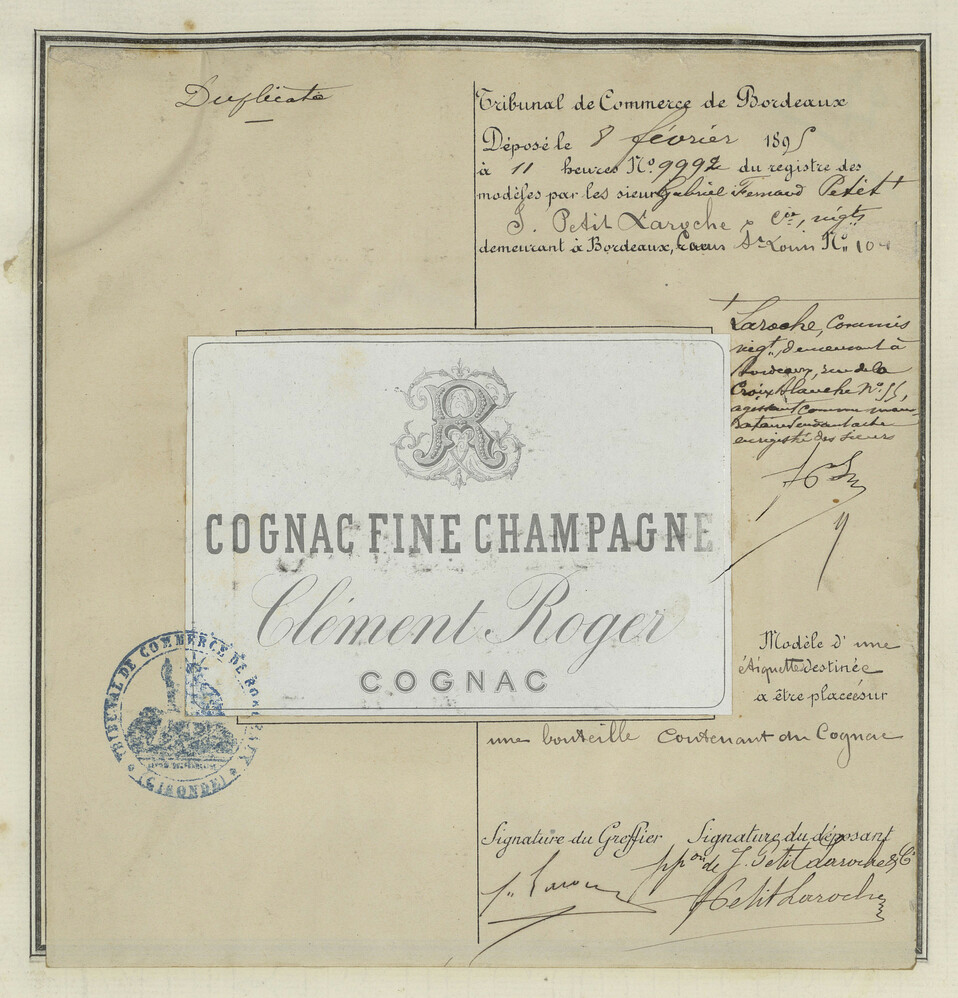 Duplicata
Tribunal de Commerce de Bordeaux
Déposé le 8 février 1895
à 11 heures No. 9992 du registre des
modèles par les sieurs Gabriel Fernand Petit
J. Petit Laroche & Cie, négts
demeurant à Bordeaux, Cours St Louis No. 104
Laroche, Commis
négt., demeurant à
Bordeaux, rue de la
Croix Blanche No. 55,
agissant comme man-
dataire
enregistré des sieurs
R
COGNAC FINE CHAMPAGNE
Clément Roger
COGNAC
TRIBUNAL DE COMMERCE DE BORDEAUX
(GIRONDE)
Modèle d'une
étiquette destinée
a être placée sur
une bouteille contenant du Cognac
Signature du Greffier Signature du déposant
ppon de J. Petit Laroche & Cie
Petit Laroche